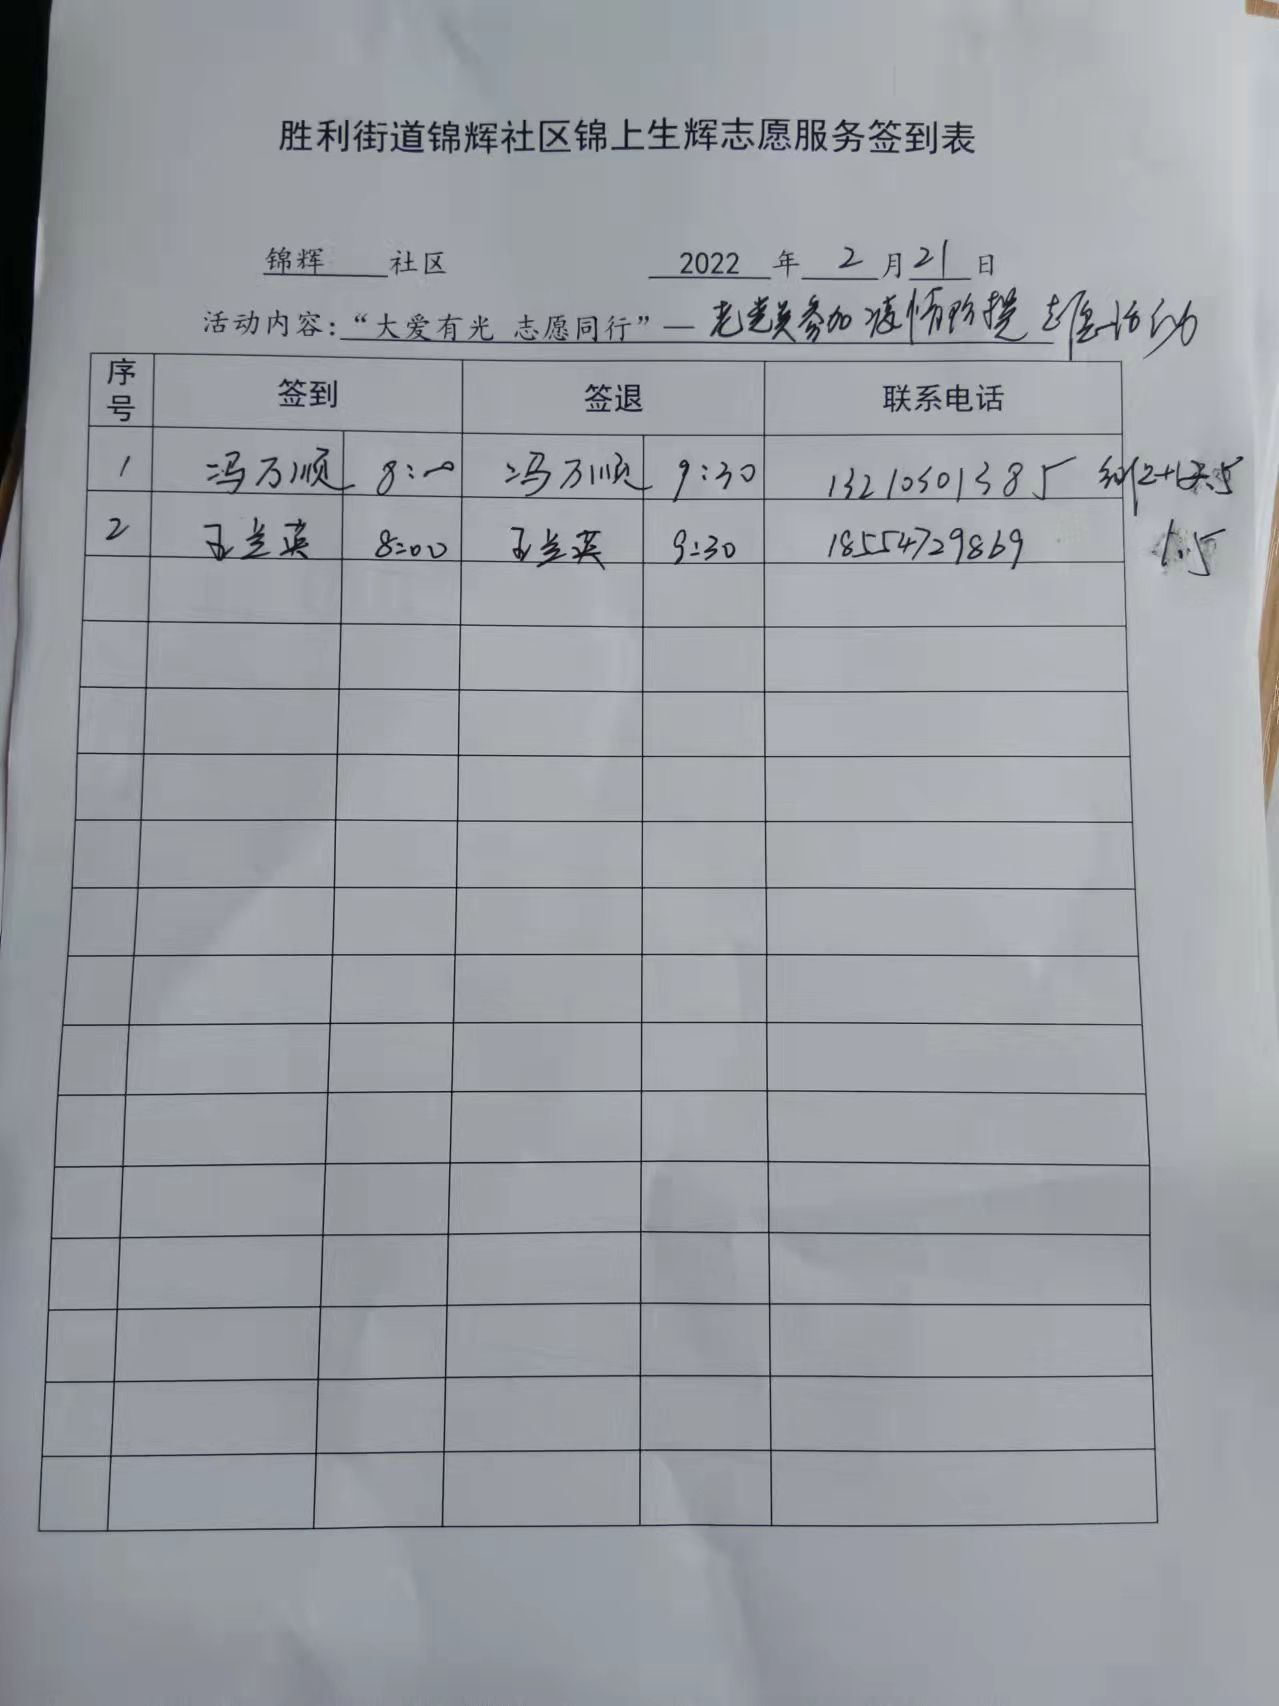 胜利街道锦辉社区锦上生辉志愿服务签到表
锦辉 社区 2022 年 2 月 21 日
活动内容：“大爱有光 志愿同行”— 老党员参加疫情防控志愿活动
序号 签到 签退 联系电话
1 冯万顺 8:00 冯万顺 9:30 13210501385
2 王兰英 8:00 王兰英 9:30 18554729869 1.5